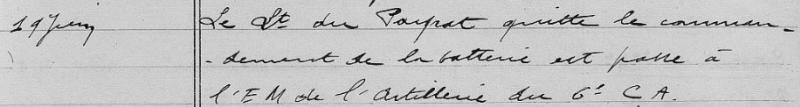 19 Juin
Le Lt du Payrat quitte le comman-
-dement de la batterie est passe à
l'EM de l'Artillerie du 6e C A.